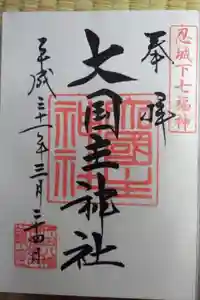 忍城下七福神
奉拝
大国主神社
平成三十一年三月二四日